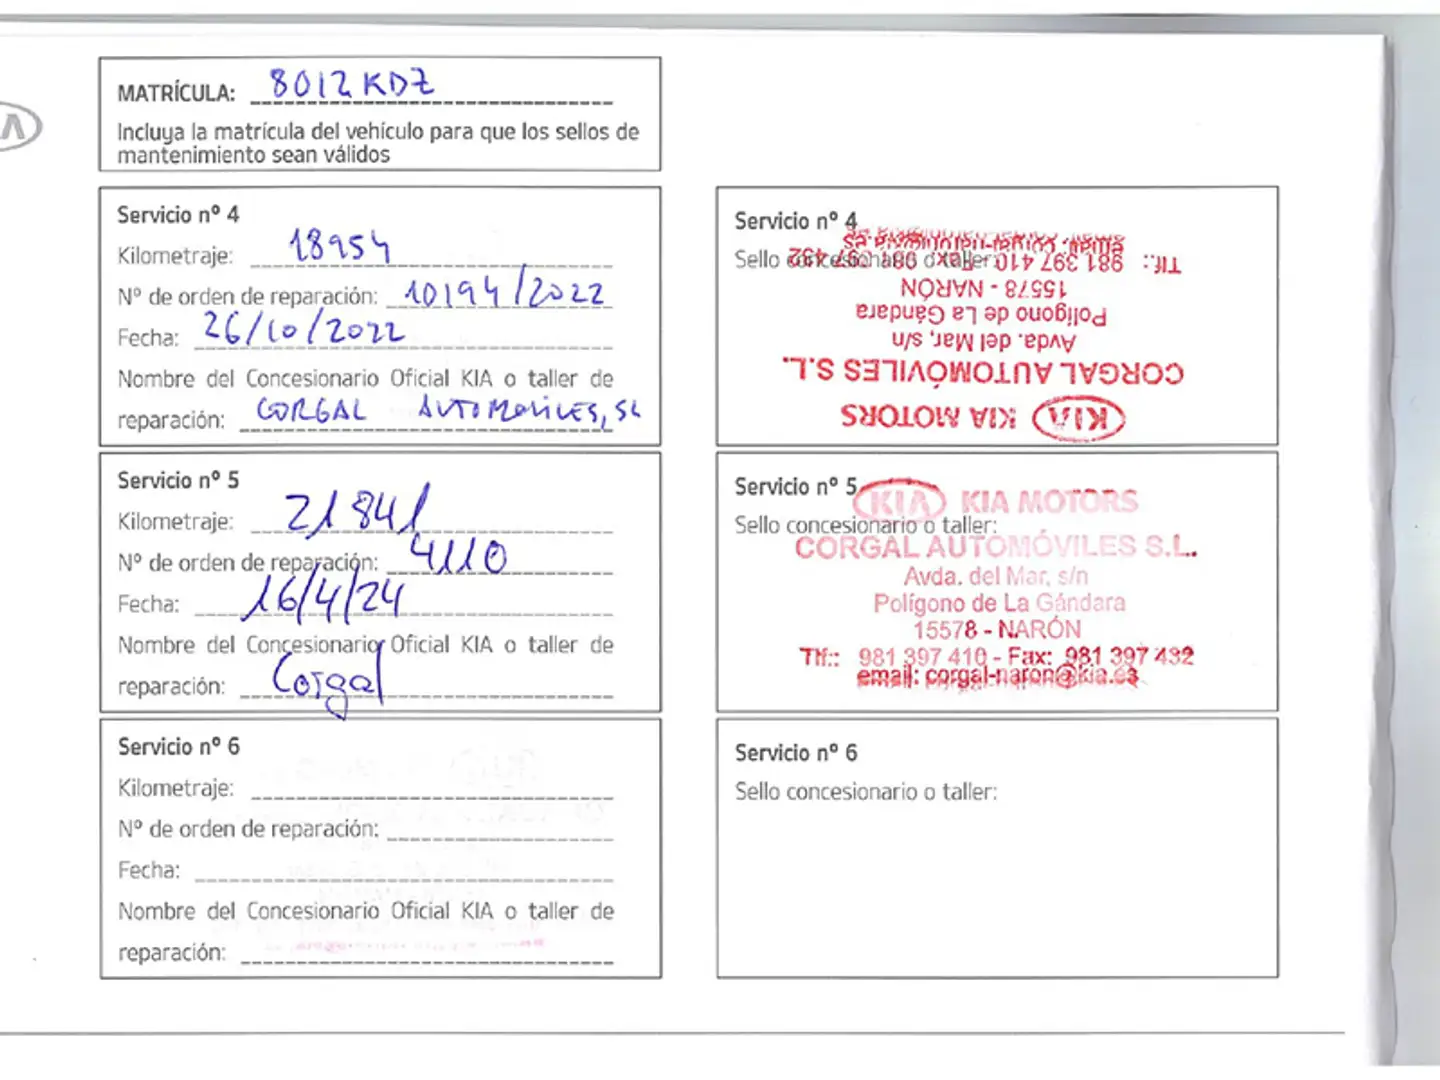 MATRÍCULA: 8012KDZ
Incluya la matrícula del vehículo para que los sellos de
mantenimiento sean válidos
Servicio nº 4
Kilometraje: 18954
Nº de orden de reparación: 10194/2022
Fecha: 26/10/2022
Nombre del Concesionario Oficial KIA o taller de
reparación: CORGAL AUTOMOVILES, SL
Servicio nº 4
Sello concesionario o taller:
KIA KIA MOTORS
CORGAL AUTOMÓVILES S.L.
Avda. del Mar, s/n
Polígono de La Gándara
15578 - NARÓN
Tlf.: 981 397 410 - Fax: 981 397 432
email: corgal-naron@kia.es
Servicio nº 5
Kilometraje: 21841
Nº de orden de reparación: 4110
Fecha: 16/4/24
Nombre del Concesionario Oficial KIA o taller de
reparación: Corgal
Servicio nº 5
Sello concesionario o taller:
KIA KIA MOTORS
CORGAL AUTOMÓVILES S.L.
Avda. del Mar, s/n
Polígono de La Gándara
15578 - NARÓN
Tlf.: 981 397 410 - Fax: 981 397 432
email: corgal-naron@kia.es
Servicio nº 6
Kilometraje:
Nº de orden de reparación:
Fecha:
Nombre del Concesionario Oficial KIA o taller de
reparación:
Servicio nº 6
Sello concesionario o taller: